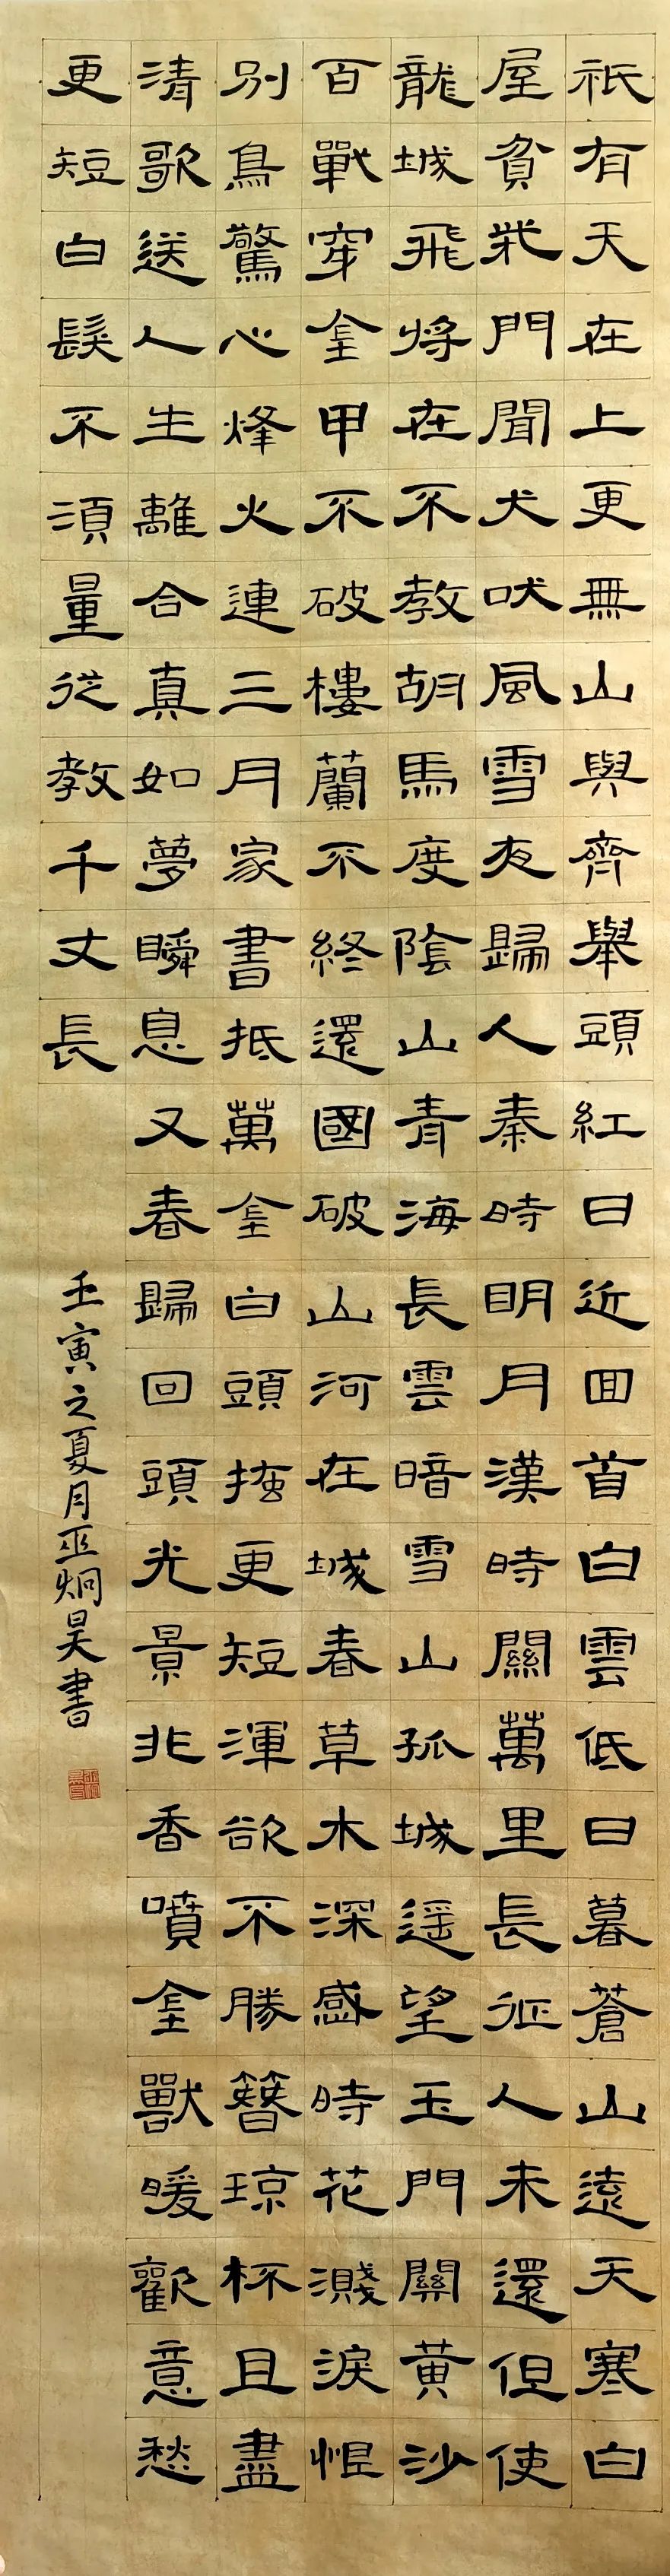 祇有天在上更無山與齊舉頭紅日近囬首白雲低日暮蒼山遠天寒白
屋貧柴門聞犬吠風雪夜歸人秦時明月漢時關萬里長征人未還但使
龍城飛將在不教胡馬度陰山青海長雲暗雪山孤城遥望玉門關黃沙
百戰穿金甲不破樓蘭不終還國破山河在城春草木深感時花濺淚恨
別鳥驚心烽火連三月家書抵萬金白頭搔更短渾欲不勝簪琼杯且盡
清歌送人生離合真如夢瞬息又春歸回頭光景非香噴金獸暖歡意愁
更短白髮不須量從教千丈長
壬寅之夏月巫炯昊書